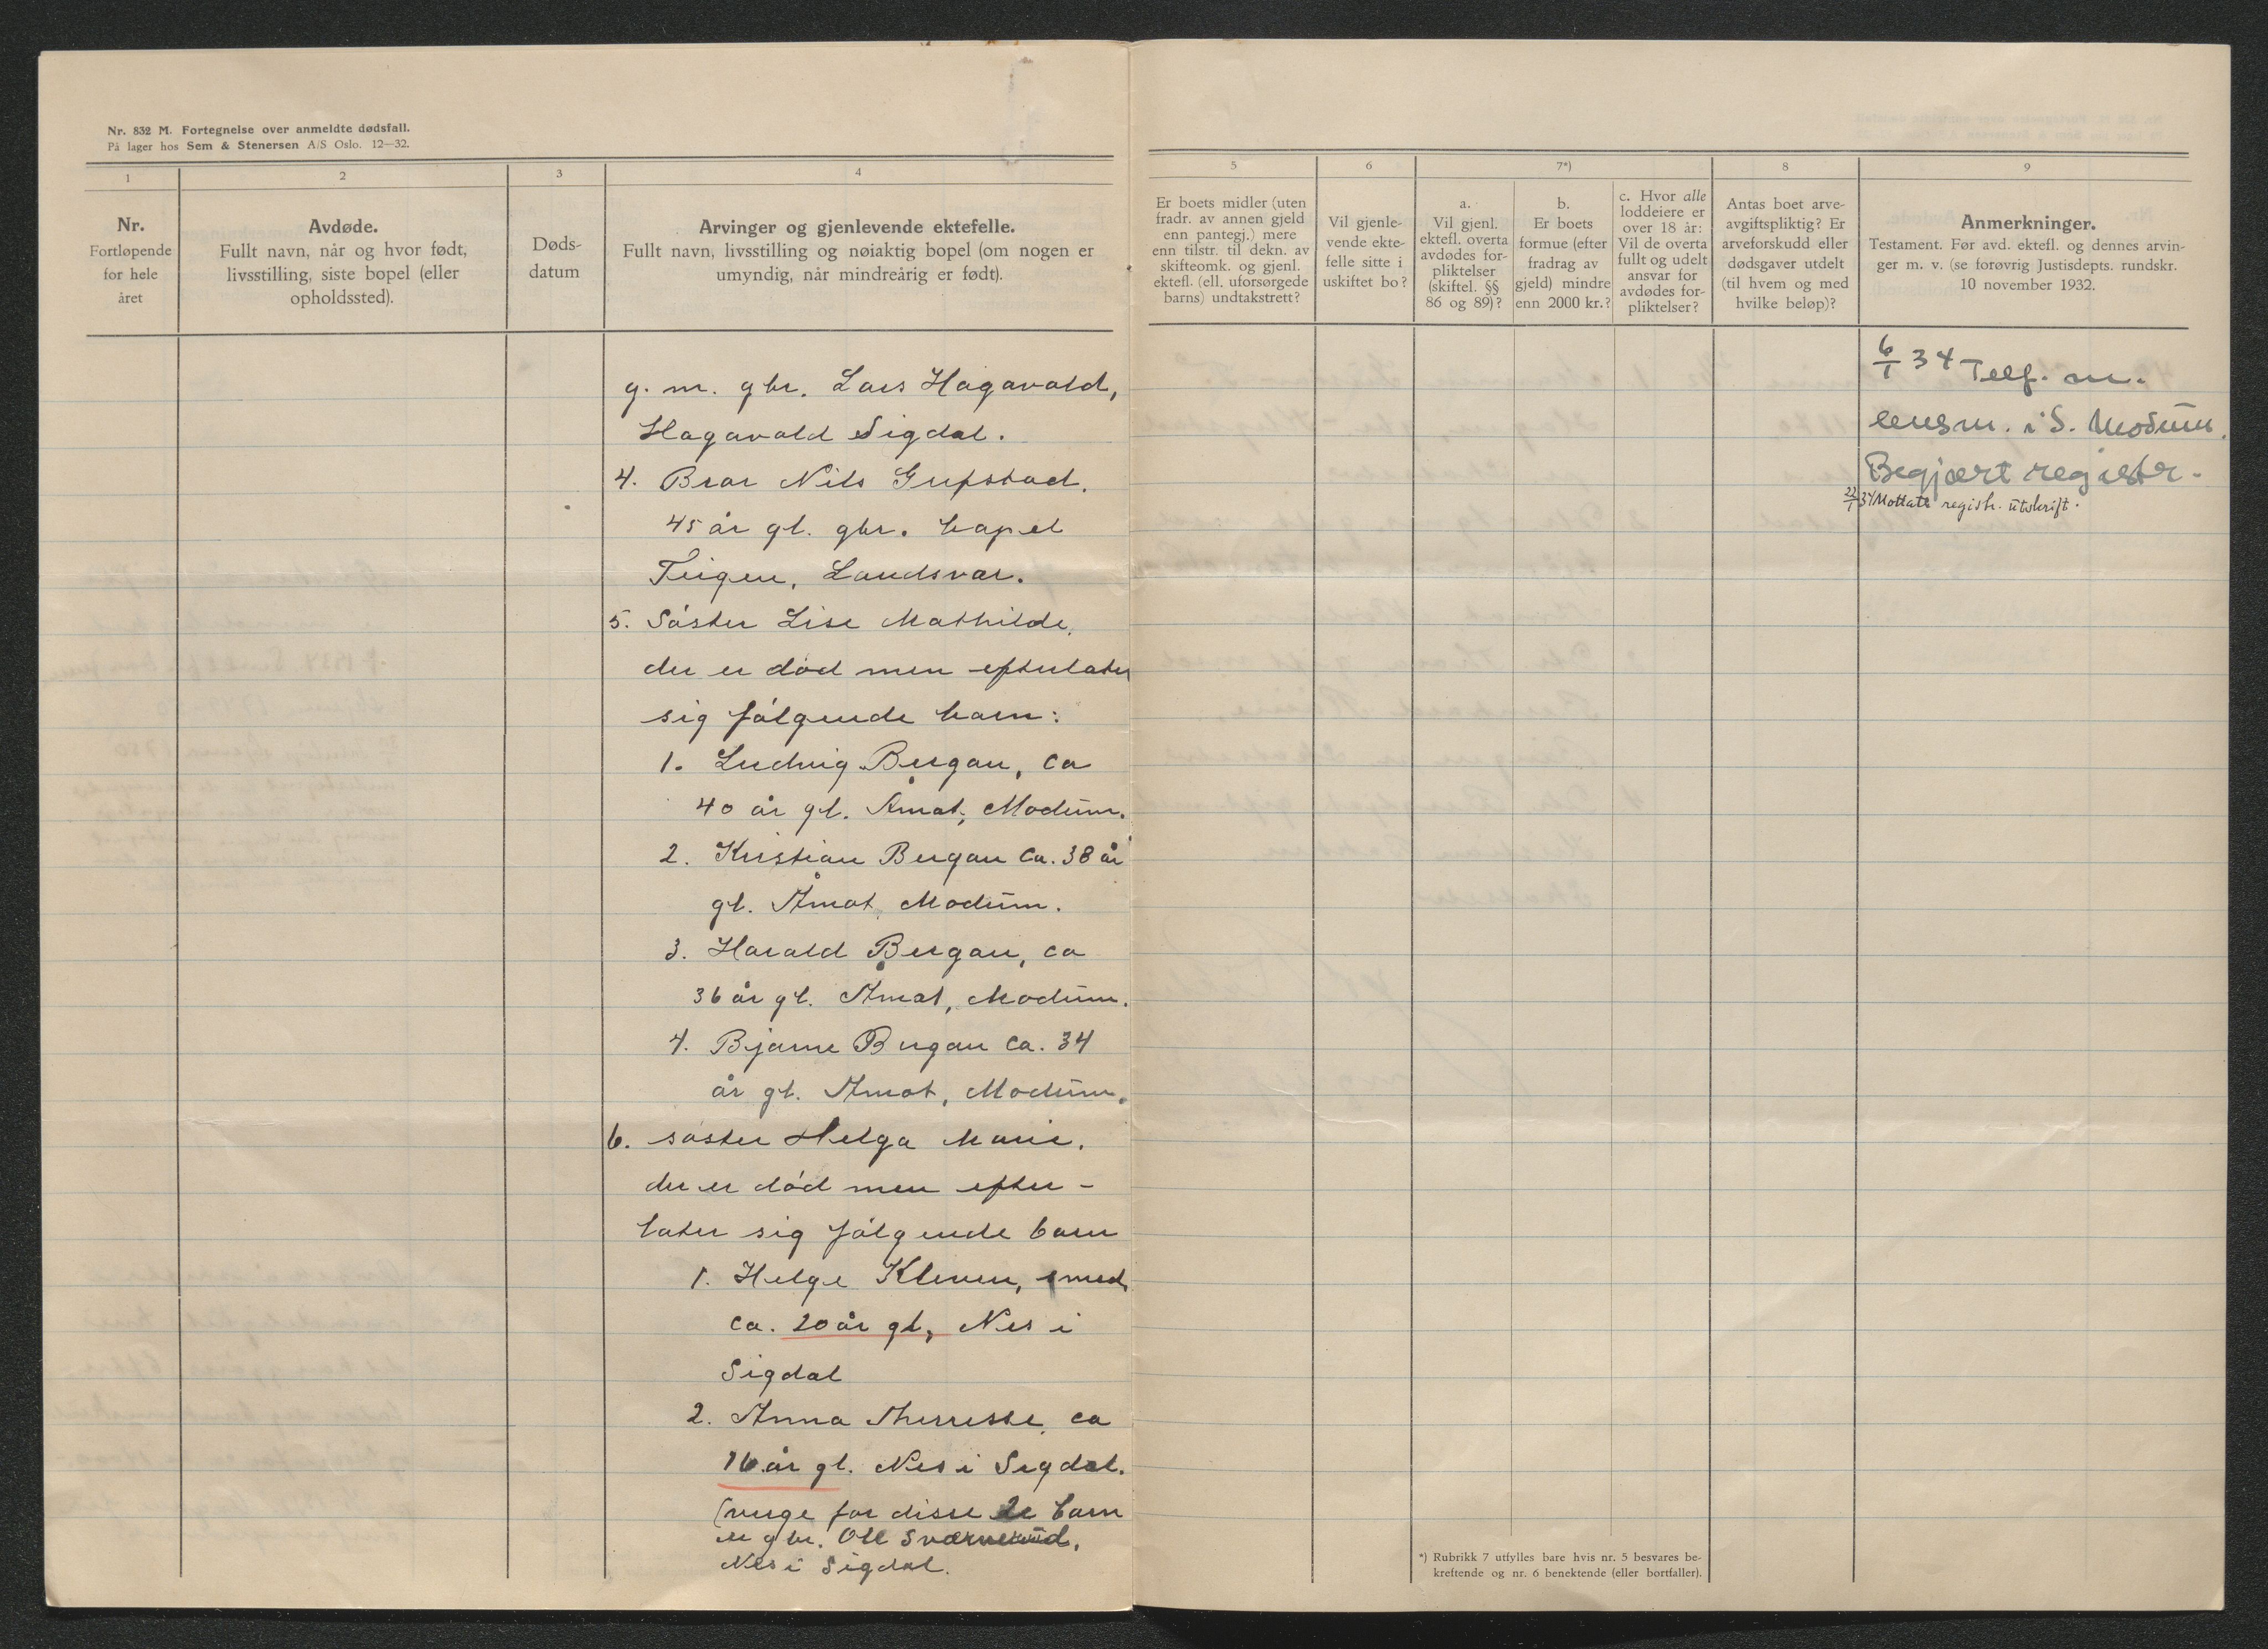 Nr. 832 M. Fortegnelse over anmeldte dødsfall.
På lager hos Sem & Stenersen A/S Oslo. 12—32.
1
2
3
4
Nr.
Fortløpende
for hele
året
Avdøde.
Fullt navn, når og hvor født,
livsstilling, siste bopel (eller
opholdssted).
Døds-
datum
Arvinger og gjenlevende ektefelle.
Fullt navn, livsstilling og nøiaktig bopel (om nogen er
umyndig, når mindreårig er født).
g. m. gbr. Lars Hagavald,
Hagavald Sigdal.
4. Bror Nils Gufstad.
45 år gl. gbr. bopel
Teigen, Landsvar.
5. Søster Lise Mathilde,
der er død men efterlater
sig følgende barn:
1. Ludvig Bergan, ca
40 år gl. Åmot, Modum.
2. Kristian Bergan ca. 38 år
gl. Åmot, Modum.
3. Harald Bergan, ca
36 år gl. Åmot, Modum.
4. Bjarne Bergan ca. 34
år gl. Åmot, Modum.
6. søster Helga Marie.
der er død men efter-
later sig følgende barn
1. Helge Kleven, smed
ca. 20 år gl, Nes i
Sigdal
2. Anna Therresse, ca
16 år gl. Nes i Sigdal.
(verge for disse 2 barn
er gbr. Ole
Nes i Sigdal.
5
6
7*)
8
9
Er boets midler (uten
fradr. av annen gjeld
enn pantegj.) mere
enn tilstr. til dekn. av
skifteomk. og gjenl.
ektefl. (ell. uforsørgede
barns) undtakstrett?
Vil gjenle-
vende ekte-
felle sitte i
uskiftet bo?
a.
Vil gjenl.
ektefl. overta
avdødes for-
pliktelser
(skiftel. §§
86 og 89)?
b.
Er boets
formue (efter
fradrag av
gjeld) mindre
enn 2000 kr.?
c. Hvor alle
loddeiere er
over 18 år:
Vil de overta
fullt og udelt
ansvar for
avdødes for-
pliktelser?
Antas boet arve-
avgiftspliktig? Er
arveforskudd eller
dødsgaver utdelt
(til hvem og med
hvilke beløp)?
Anmerkninger.
Testament. Før avd. ektefl. og dennes arvin-
ger m. v. (se forøvrig Justisdepts. rundskr.
10 november 1932.
6/1 34 Telf. m.
lensm. i S. Modum.
Begjært registr.
22/1 34 Mottatt registr. utskrift.
*) Rubrikk 7 utfylles bare hvis nr. 5 besvares be-
kreftende og nr. 6 benektende (eller bortfaller).